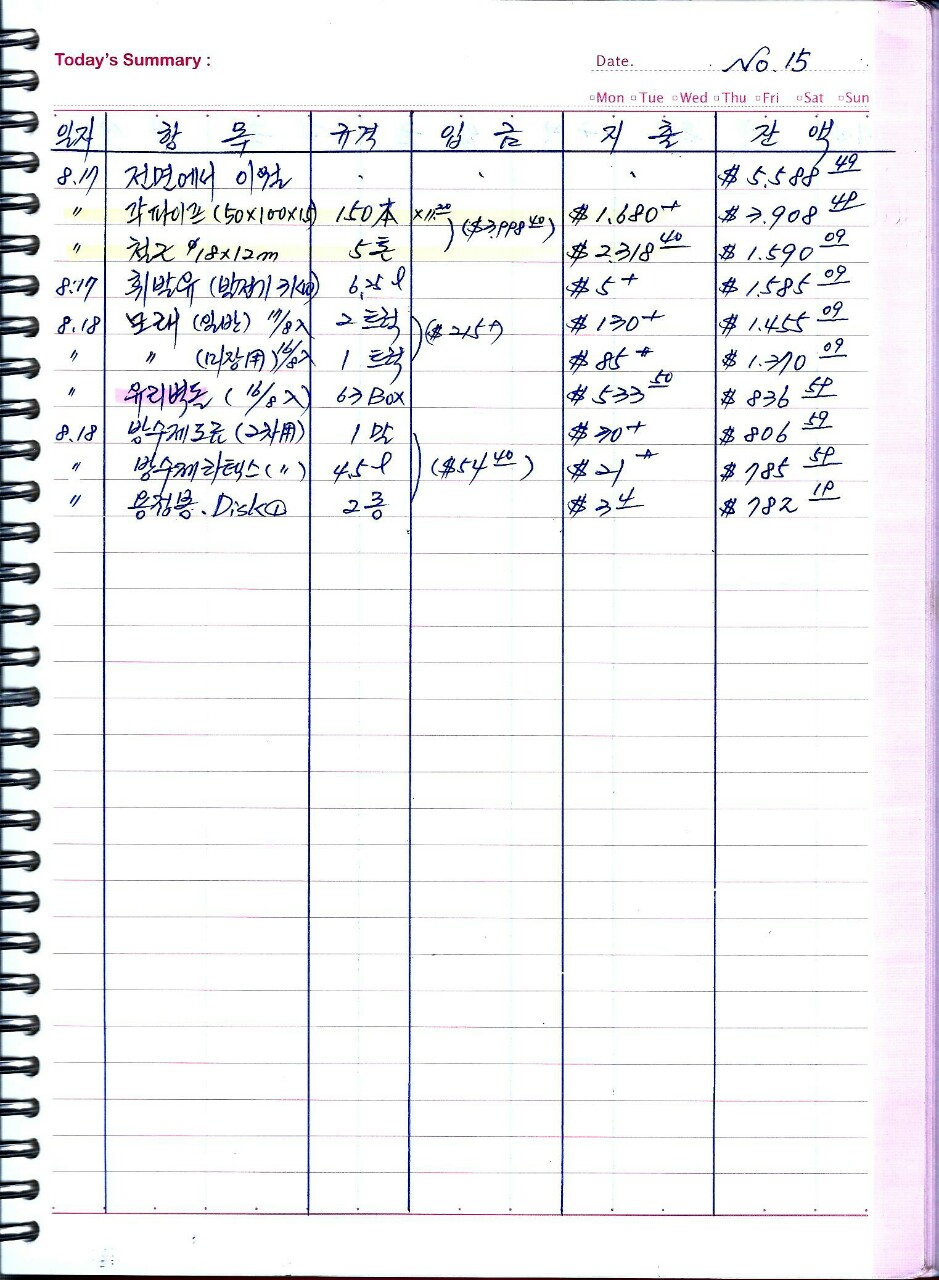 Today's Summary :
Date. No. 15
Mon Tue Wed Thu Fri Sat Sun
일자 항 목 규격 입 금 지 출 잔 액
8.17 전면에서 이월 $ 5.588 49
" 각파이프 (50×100×1.5) 150本 ×11.20 $ 1.680 $ 3.908 49
($3.998 40)
" 철근 φ18×12m 5톤 $ 2.318 40 $ 1.590 09
8.17 휘발유 (발전기 6.25ℓ $ 5 $ 1.585 09
8.18 모래 (일반) 17/8入 2 트럭 ($ 215) $ 130 $ 1.455 09
" " (미장用) 16/8入 1 트럭 $ 85 $ 1.370 09
" 유리벽돌 ( 16/8入) 63 Box $ 533 50 $ 836 59
8.18 방수제도료 (2차用) 1 말 $ 30 $ 806 59
" 방수제라텍스 ( " ) 4.5ℓ ($54 40) $ 21 $ 785 59
" 용접봉. Disk① 2종 $ 3 4 $ 782 19